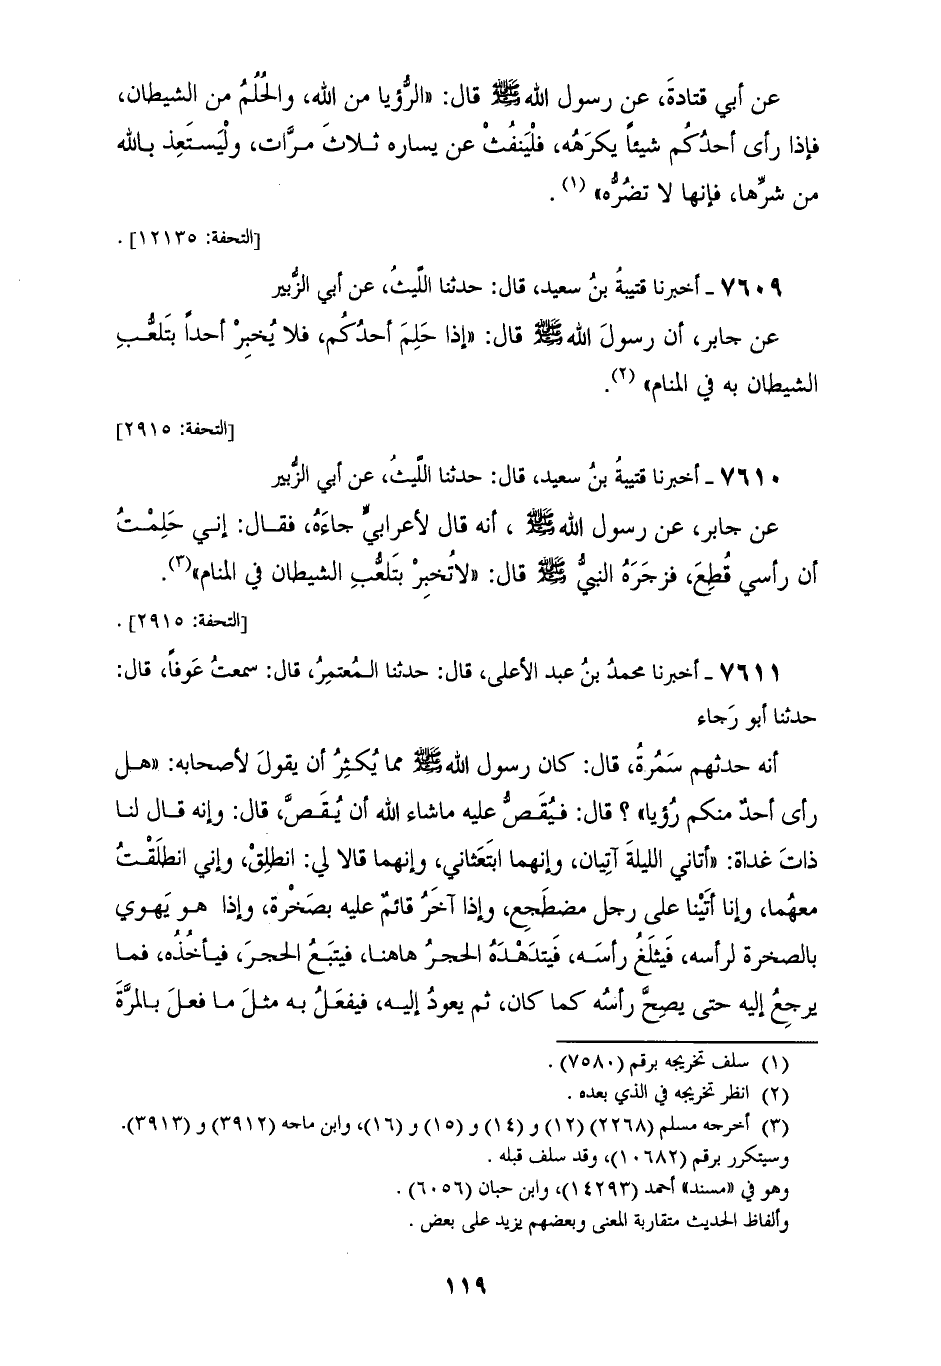 عن أبي قتادةَ، عن رسول الله ﷺ قال: «الرُّؤيا من الله، والحُلُمُ من الشيطان،
فإذا رأى أحدُكُم شيئاً يكرَهُه، فلْيَنفُثْ عن يساره ثـلاثَ مـرَّات، ولْيَسـتَعِذ بـالله
من شرِّها، فإنها لا تضُرُّه» (١) .
[التحفة: ١٢١٣٥] .
٧٦٠٩ ـ أخبرنا قتيبةُ بنُ سعيد، قال: حدثنا اللَّيثُ، عن أبي الزُّبير
عن جابر، أن رسولَ الله ﷺ قال: «إذا حَلِمَ أحدُكُم، فلا يُخبِرْ أحداً بتَلعُّـبِ
الشيطان به في المنام» (٢).
[التحفة: ٢٩١٥]
٧٦١٠ ـ أخبرنا قتيبةُ بنُ سعيد، قال: حدثنا اللَّيثُ، عن أبي الزُّبير
عن جابر، عن رسول الله ﷺ ، أنه قال لأعرابيٍّ جاءَهُ، فقـال: إنـي حَلِمْـتُ
أن رأسي قُطِعَ، فزجَرَهُ النبيُّ ﷺ قال: «لاتُخبِرْ بتَلعُّبِ الشيطان في المنام»(٣).
[التحفة: ٢٩١٥] .
٧٦١١ ـ أخبرنا محمدُ بنُ عبد الأعلى، قال: حدثنا الـمُعتمِرُ، قال: سمعتُ عَوفاً، قال:
حدثنا أبو رَجاء
أنه حدثهم سَمُرةُ، قال: كان رسول الله ﷺ مما يُكثِرُ أن يقولَ لأصحابه: «هـل
رأى أحدٌ منكم رُؤيا» ؟ قال: فـيُقَـصُّ عليه ماشاء الله أن يُـقَـصَّ، قال: وإنه قـال لنـا
ذاتَ غداة: «أتاني الليلةَ آتِيان، وإنهما ابتَعَثاني، وإنهما قالا لي: انطلِقْ، وإني انطلَقْـتُ
معهُما، وإنا أتَيْنا على رجل مضطَجِع، وإذا آخَرُ قائمٌ عليه بصَخْرة، وإذا هـو يَهـوي
بالصخرة لرأسه، فَيثلَغُ رأسَـه، فَيتدَهْـدَهُ الحجرُ هاهنـا، فيتبَعُ الحجرَ، فيـأخُذُه، فمـا
يرجِعُ إليه حتى يصِحَّ رأسُه كما كان، ثم يعودُ إليـه، فيفعَـلُ بـه مثـلَ مـا فعـلَ بـالمرَّةَ
(١) سلف تخريجه برقم (٧٥٨٠) .
(٢) انظر تخريجه في الذي بعده .
(٣) أخرجه مسلم (٢٢٦٨) (١٢) و (١٤) و (١٥) و (١٦)، وابن ماجه (٣٩١٢) و (٣٩١٣).
وسيتكرر برقم (١٠٦٨٢)، وقد سلف قبله .
وهو في «مسند» أحمد (١٤٢٩٣)، وابن حبان (٦٠٥٦) .
وألفاظ الحديث متقاربة المعنى وبعضهم يزيد على بعض .
١١٩